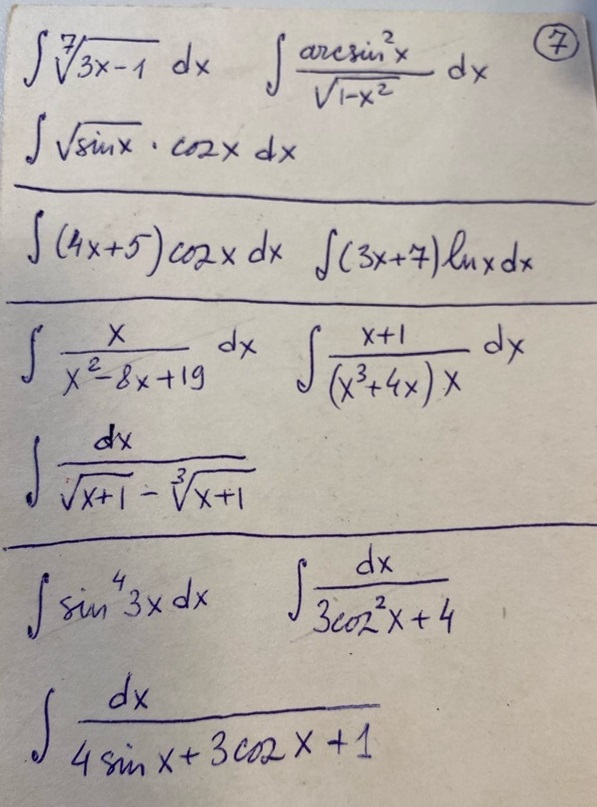 ∫ ⁷√(3x-1) dx ∫ arcsin²x / √(1-x²) dx ⑦
∫ √(sinx) · cosx dx
∫(4x+5)cosx dx ∫(3x+7)lnxdx
∫ x / (x²-8x+19) dx ∫ (x+1) / ((x³+4x)x) dx
∫ dx / (√(x+1) - ³√(x+1))
∫ sin⁴3x dx ∫ dx / (3cos²x+4)
∫ dx / (4sinx+3cosx+1)